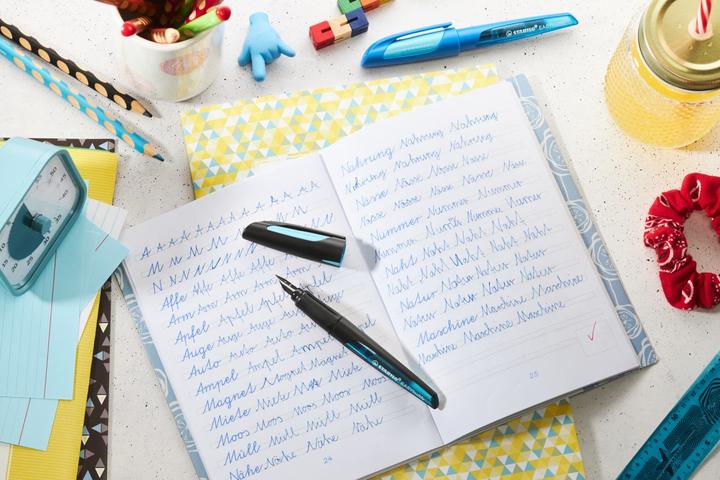 A A A A A A A A A A A A A
M M M M M M M M
N N N N N N N N
Affe Affe Affe Affe Affe
Arm Arm Arm Arm Arm
Apfel Apfel Apfel Apfel
Auge Auge Auge
Auto Auto Auto Auto
Ampel Ampel Ampel
Magnet Magnet Magnet
Miete Miete Miete
Moos Moos Moos Moos Moos
Müll Müll Müll Müll
Nähe Nähe Nähe Nähe
24
Nahrung Nahrung Nahrung
Nahrung Nahrung Nahrung
Nässe Nässe Nässe Nässe
Nässe Nässe Nässe Nässe Nässe
Nummer Nummer Nummer
Nummer Nummer Nummer Nummer
Naht Naht Naht Naht
Naht Naht Naht Naht Naht
Natur Natur Natur Natur
Natur Natur Natur Natur
Maschine Maschine Maschine
Maschine Maschine Maschine
25
STABILO EASY
STABILO EASY